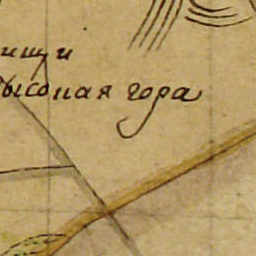 ищи
Высокая гора